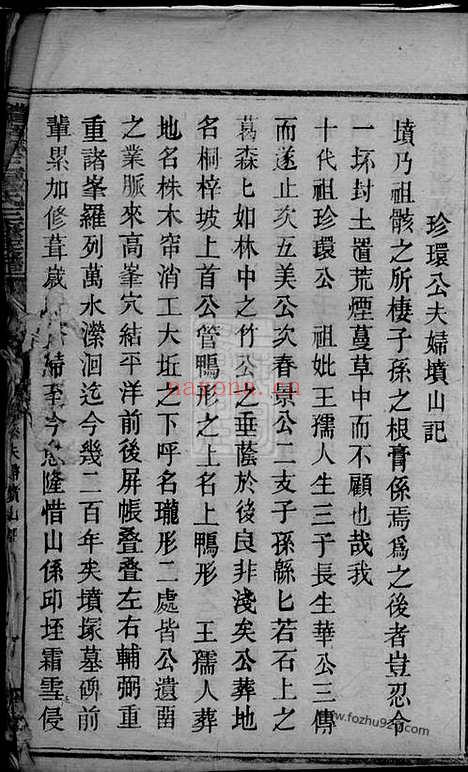 珍環公夫婦墳山記
墳乃祖骸之所棲子孫之根膏係焉爲之後者豈忍令
一坏封土置荒煙蔓草中而不顧也哉我
十代祖珍環公 祖妣王孺人生三子長生華公三傳
而遂止次五美公次春景公二支子孫緜匕若石上之
葛森匕如林中之竹公之垂蔭於後良非淺矣公葬地
名桐梓坡上首公管鴨形之上名上鴨形 王孺人葬
地名株木帘消工大坵之下呼名瓏形二處皆公遺㽞
之業脈來高峯穴結平洋前後屏帳疊疊左右輔弼重
重諸峯羅列萬水濴洄迄今幾二百年矣墳塚墓碑前
輩累加修葺歲締至今愈隆惜山係邱垤霜雪侵
夫婦墳山記
nasono.cn
www.fozhu920.com